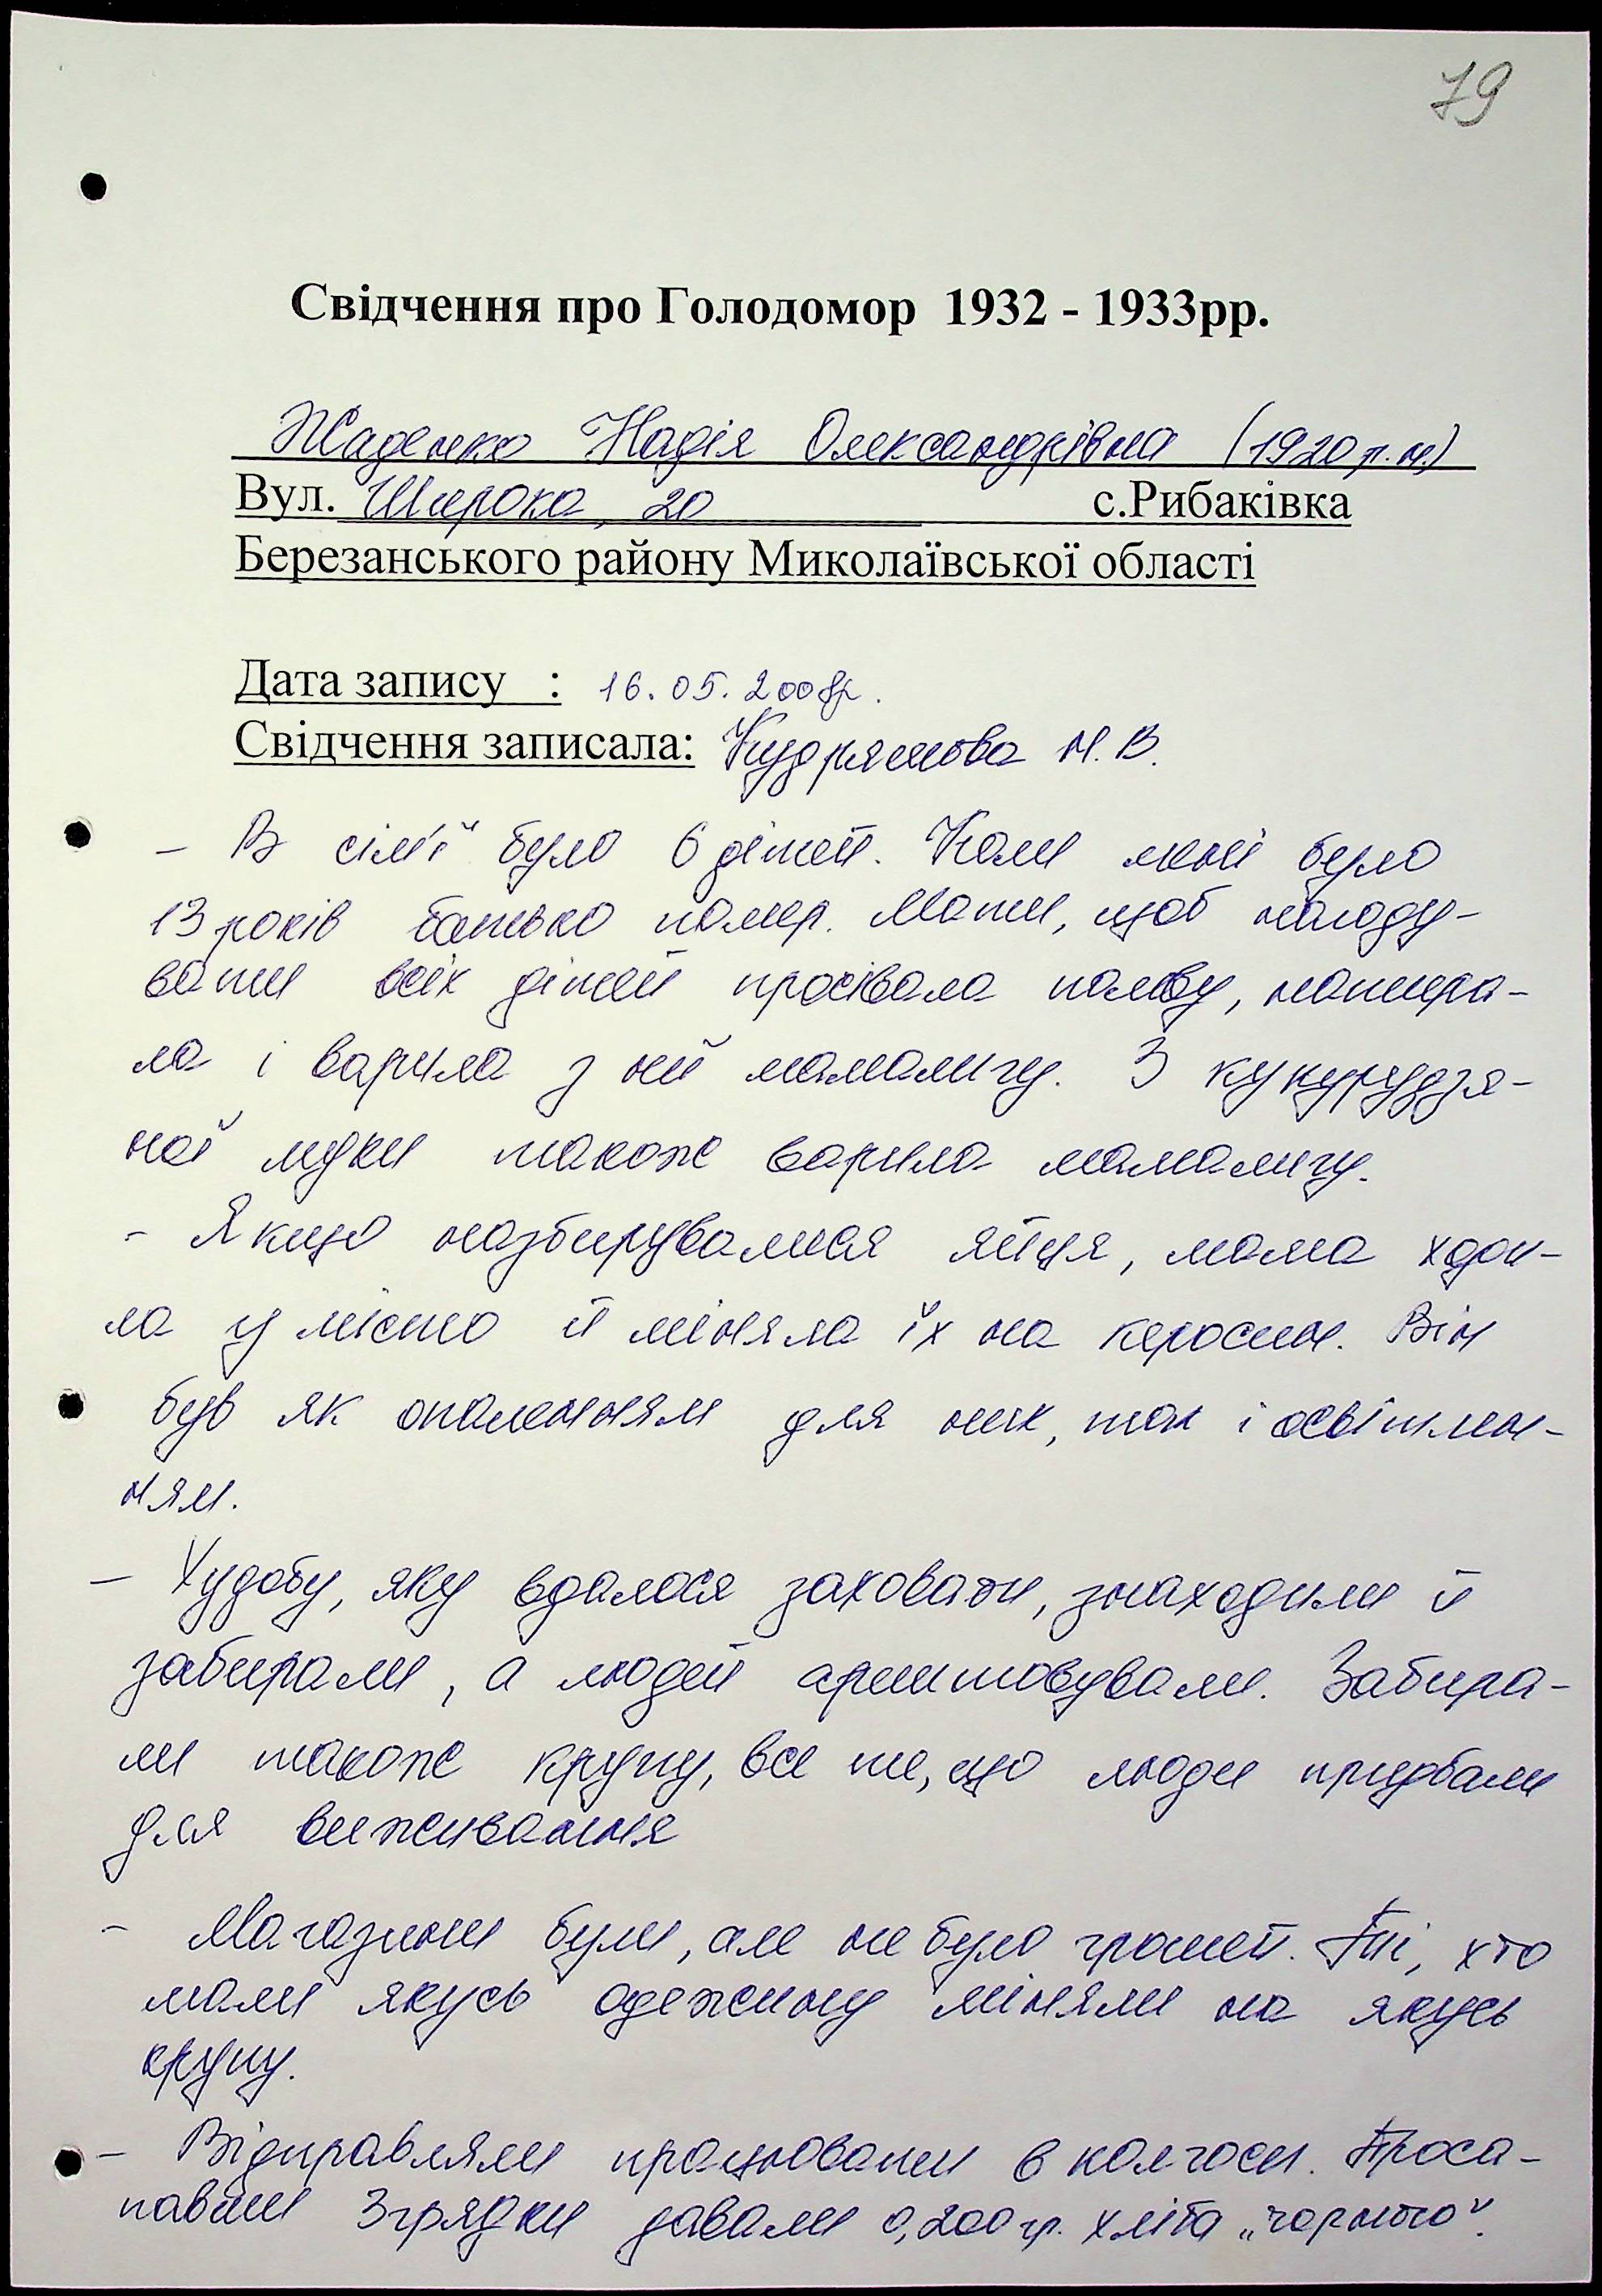 79
Свідчення про Голодомор 1932 - 1933рр.
Жаденко Надія Олександрівна (1920 р.н.)
Вул. Широка, 20 с.Рибаківка
Березанського району Миколаївської області
Дата запису : 16.05.2008р.
Свідчення записала: Кудряшова Н.В.
– В сім'ї було 6 дітей. Коли мені було
13 років батько помер. Мати, щоб нагоду-
вати всіх дітей просівала полову, натира-
ла і варила з неї мамалигу. З кукурудзя-
ної муки також варила мамалигу.
- Якщо назбирувалися яйця, мама ходи-
ла у місто й міняла їх на керосин. Він
був як опаленням для них, так і освітлен-
ням.
– Худобу, яку вдалося заховати, знаходили й
забирали, а людей арештовували. Забира-
ли також крупу, все те, що люди придбали
для виживання
- Магазини були, але не було грошей. Ті, хто
мали якусь одежину міняли на якусь
крупу.
– Відправляли працювати в колгосп. Проса-
павши 3 грядки давали 0,200 гр. хліба „чорного".